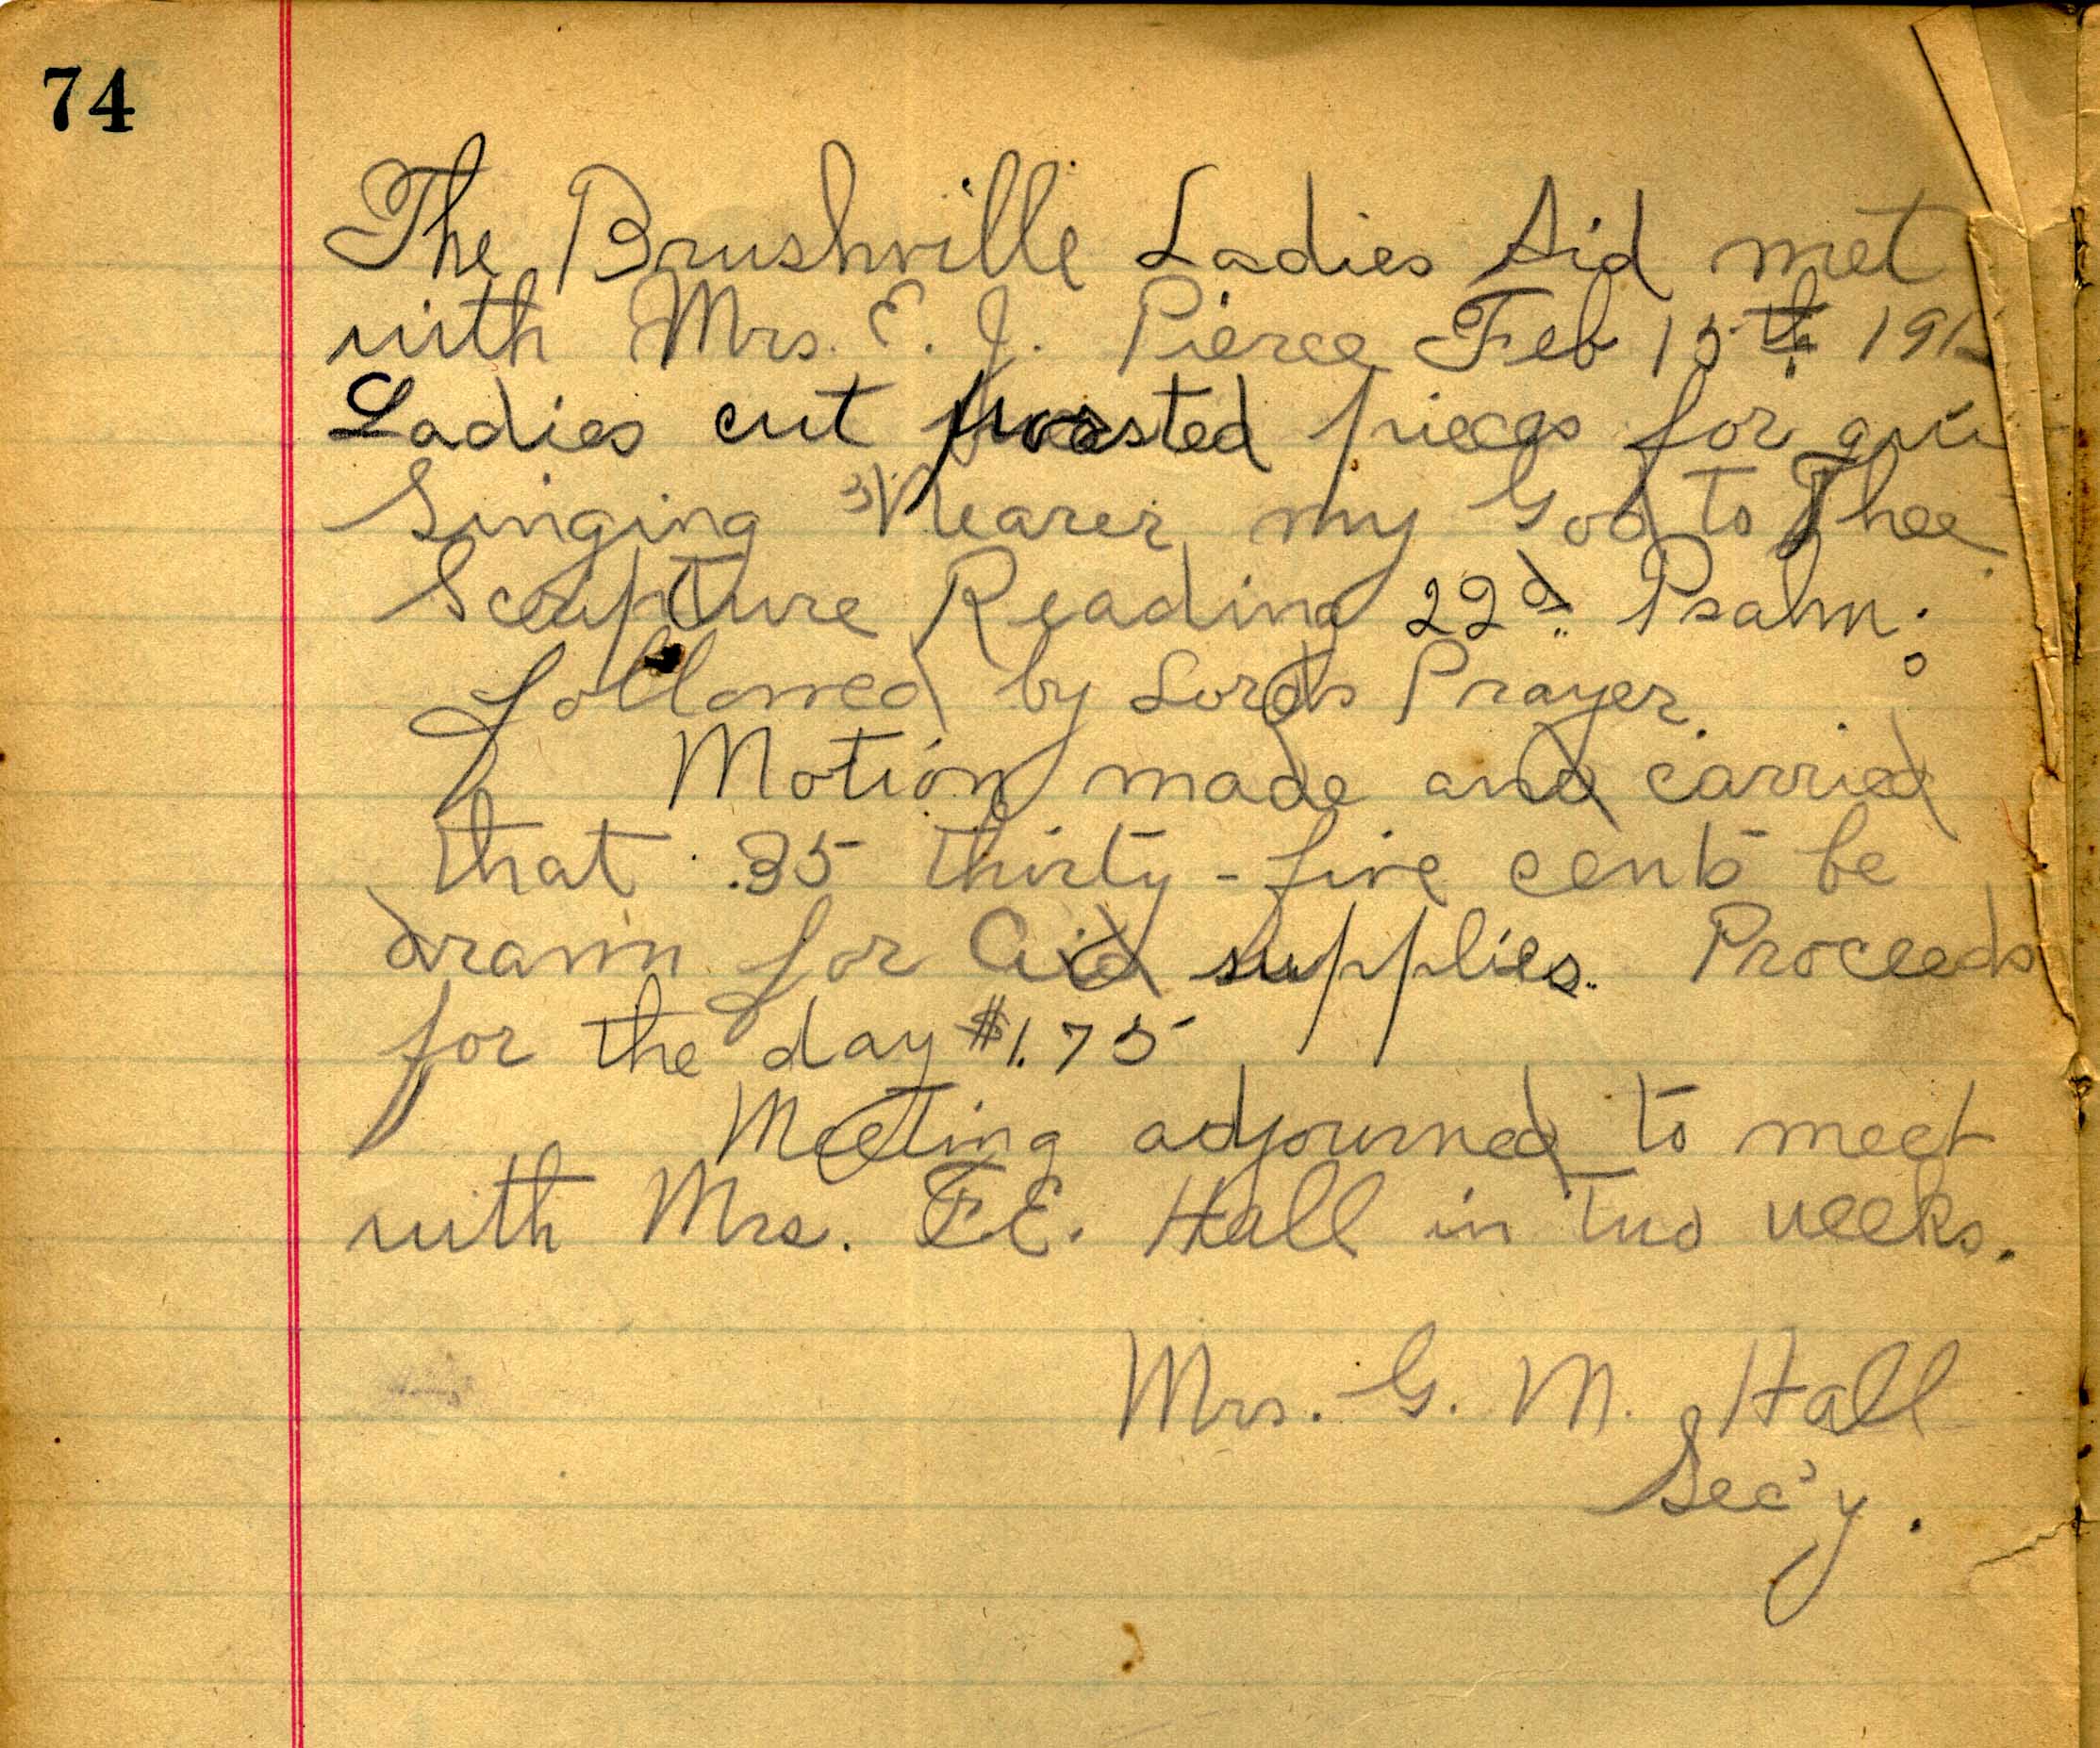 74
The Brushville Ladies Aid met
with Mrs. E. J. Pierce Feb 15th 191
Ladies cut worsted pieces for qui
Singing "Nearer my God to Thee
Scripture Reading 22d. Psalm.
followed by Lord's Prayer.
Motion made and carried
that .35 thirty-five cents be
drawn for Aid supplies. Proceeds
for the day $1.75
Meeting adjourned to meet
with Mrs. F.E. Hall in two weeks.
Mrs. G. M. Hall
Sec'y.